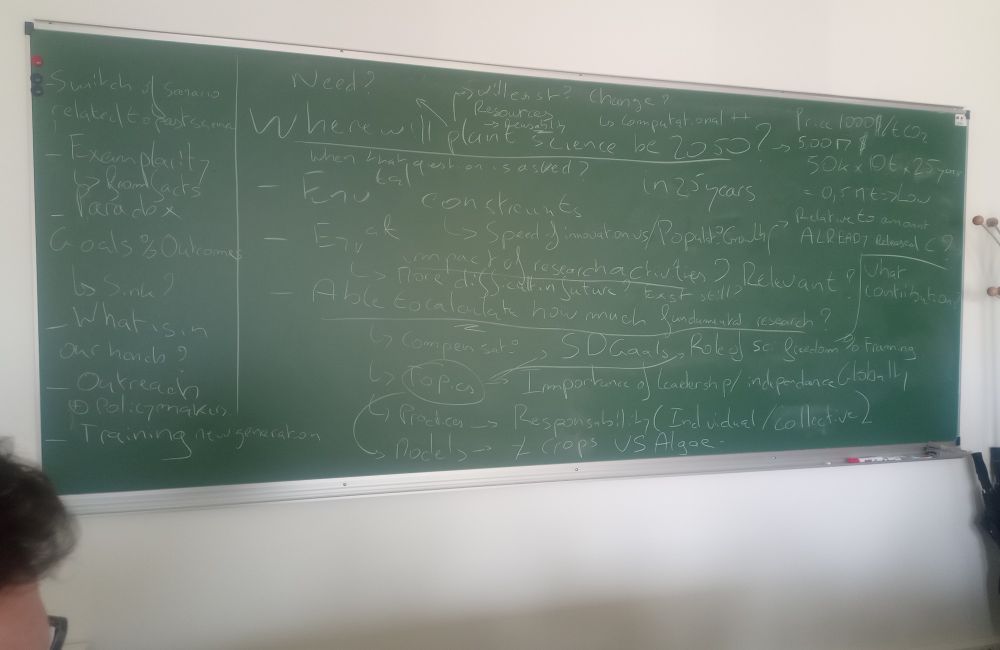 Switch of scenario
related to past
- Exemplarity
↳ Room facts
- Paradox
Goals % Outcomes
↳ Sink?
- What is in
our hands?
- Outreach
⊕ Policymakers
- Training new generation
Need?
→ will exist? Change?
Resources
↳ computational ++
Where will plant science be 2050?
When that question is asked?
in 25 years
- Env constraints
↳ Speed of innovation vs/Populat° Growth?
impact of research activities? Relevant?
↳ More difficult in future? Exist still?
- Able to calculate how much fundamental research?
↳ Compensat°
→ SD Goals → Role of sci freedom % Framing
↳ Topics → Importance of leadership/independance Globally
↳ Practices → Responsability (Individual/collective)
↳ Models → ≠ Crops VS Algae
Price 1000 $/t CO2
→ 500 M $
50k × 10t × 25 years
= 0,5 Mt → Low
Relative to amount
ALREADY Released C?
What
contribution